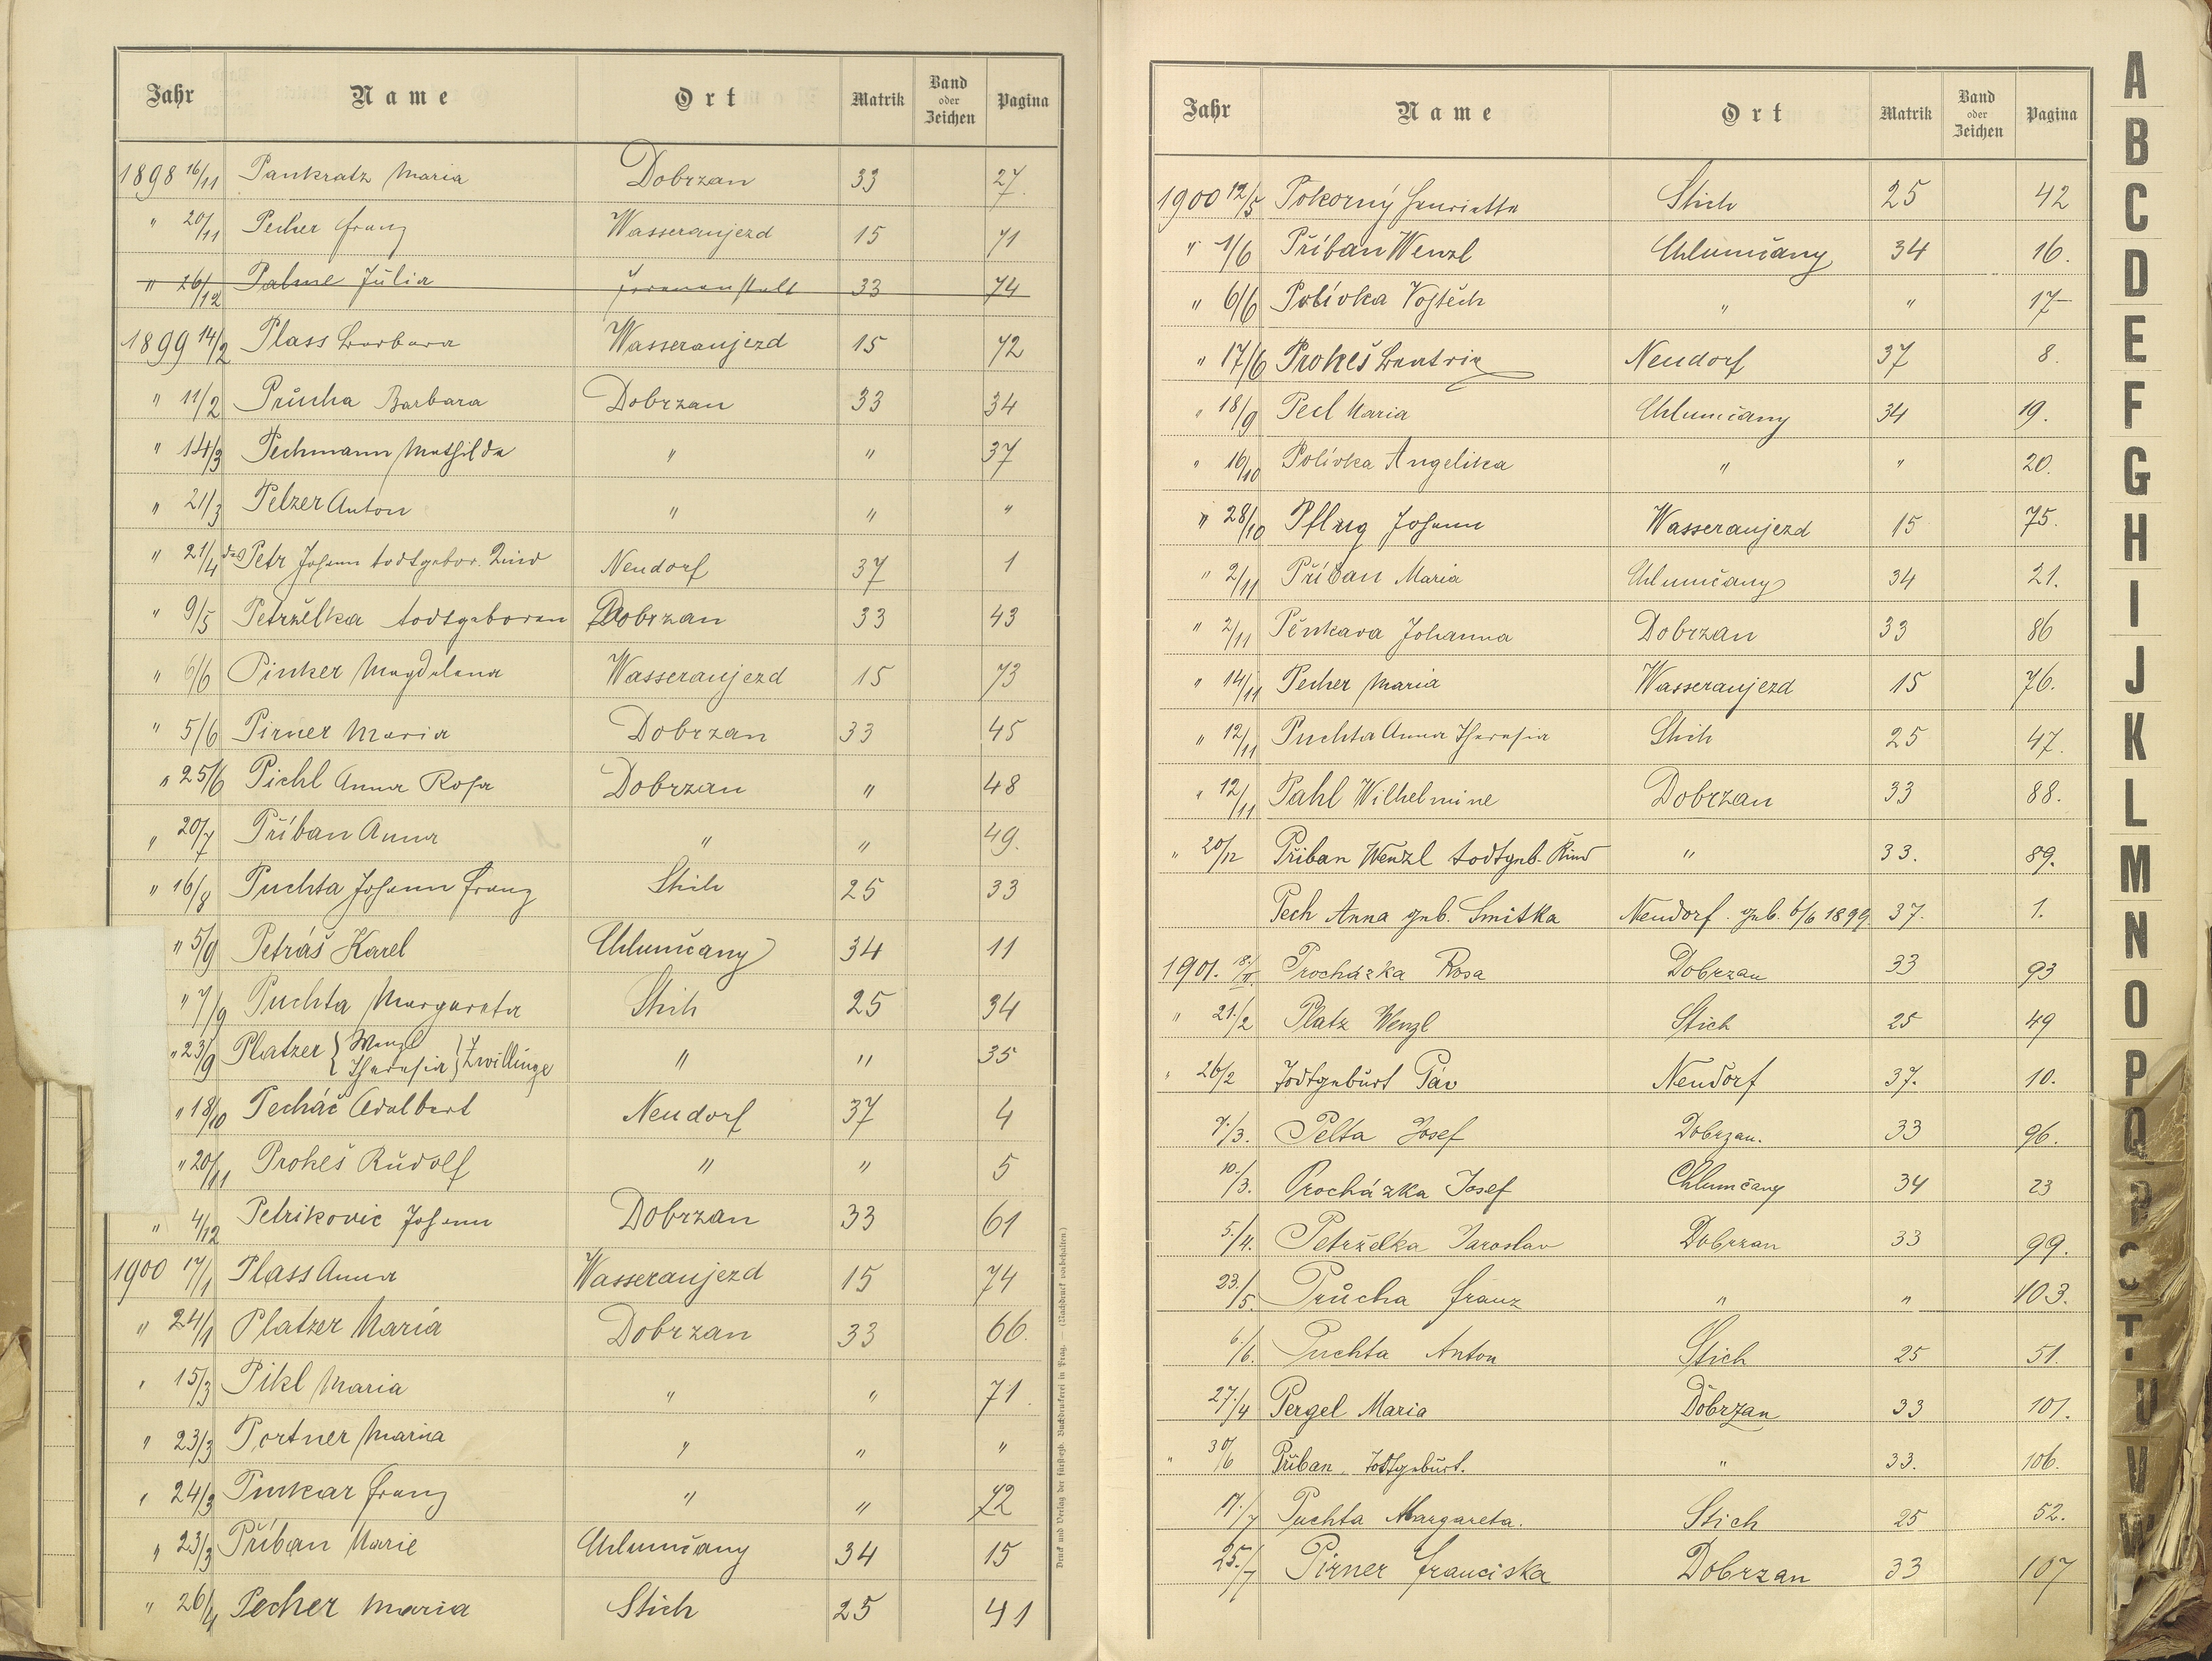 Jahr Name Ort Matrik Band oder Zeichen Pagina
1898 16/11 Pankratz Maria Dobrzan 33 27.
" 20/11 Pecher Franz Wasseraujezd 15 71
" 26/12 Palme Julia Irrenanstalt 33 74
1899 14/2 Plass Barbara Wasseraujezd 15 72
" 11/2 Průcha Barbara Dobrzan 33 34
" 14/3 Pechmann Mathilde " " 37
" 21/3 Pelzer Anton " " "
" 21/4 das Petr Johann todtgebor. Kind Neudorf 37 1
" 9/5 Petrželka todtgeboren Dobrzan 33 43
" 6/6 Pinker Magdalena Wasseraujezd 15 73
" 5/6 Pirner Maria Dobrzan 33 45
" 25/6 Pichl Anna Rosa Dobrzan " 48
" 20/7 Příban Anna " " 49.
" 16/8 Puchta Johann Franz Stich 25 33
" 5/9 Petráš Karel Chlumčany 34 11
" 7/9 Puchta Margareta Stich 25 34
" 23/9 Platzer { Wenzl Theresia } Zwillinge " " 35
" 18/10 Pecháč Adalbert Neudorf 37 4
" 20/11 Prokeš Rudolf " " 5
" 4/12 Petrikovic Johann Dobrzan 33 61
1900 17/1 Plass Anna Wasseraujezd 15 74
" 24/1 Platzer Maria Dobrzan 33 66.
" 15/3 Pikl Maria " " 71.
" 23/3 Portner Maria " " "
" 24/3 Pinkar Franz " " 72
" 23/3 Příban Marie Chlumčany 34 15
" 26/4 Pecher Maria Stich 25 41
Druck und Verlag der fürsterzb. Buchdruckerei in Prag. — (Nachdruck vorbehalten.)
Jahr Name Ort Matrik Band oder Zeichen Pagina
1900 12/5 Pokorný Henriette Stich 25 42
" 1/6 Příban Wenzl Chlumčany 34 16.
" 6/6 Polívka Vojtěch " " 17
" 17/6 Prokeš Beatrix Neudorf 37 8.
" 18/9 Pecl Maria Chlumčany 34 19.
" 16/10 Polívka Angelika " " 20.
" 28/10 Pflug Johann Wasseraujezd 15 75.
" 2/11 Příban Maria Chlumčany 34 21.
" 2/11 Pěnkava Johanna Dobrzan 33 86
" 14/11 Pecher Maria Wasseraujezd 15 76.
" 12/11 Puchta Anna Theresia Stich 25 47.
" 12/11 Pahl Wilhelmine Dobrzan 33 88.
" 20/12 Příban Wenzl todtgeb. Kind " 33. 89.
Pech Anna geb. Smitka Neudorf. geb. 6/6 1899. 37. 1.
1901. 18./II. Procházka Rosa Dobrzan 33 93
" 21./2 Platz Wenzl Stich 25 49
" 26/2 Todtgeburt Páv Neudorf 37. 10.
7./3. Pelta Josef Dobrzan. 33 96.
10./3. Procházka Josef Chlumčany 34 23
5./4. Petrželka Jaroslav Dobrzan 33 99.
23./5. Průcha Franz " " 103.
6./6. Puchta Anton Stich 25 51.
27./4 Pergel Maria Dobrzan 33 101.
" 30/6 Příban Todtgeburt. " 33. 106.
17./7 Puchta Margareta. Stich 25 52.
25./7 Pirner Franciska Dobrzan 33 107
A
B
C
D
E
F
G
H
I
J
K
L
M
N
O
P
Q
R
S
T
U
V
W